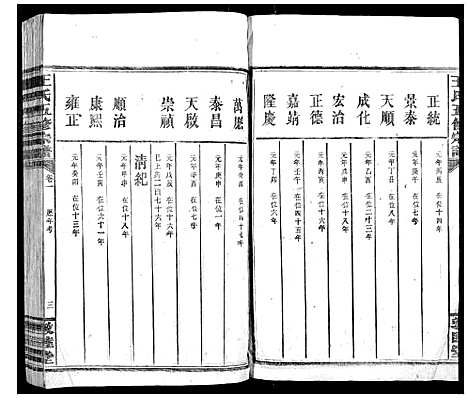 王氏五修宗譜
正統 元年丙辰 在位十四年
景泰 元年庚午 在位七年
天順 元年丁丑 在位八年
成化 元年乙酉 在位二十三年
宏治 元年戊申 在位十八年
正德 元年丙寅 在位十六年
嘉靖 元年壬午 在位四十五年
隆慶 元年丁卯 在位六年
敦睦堂
萬曆 元年癸酉 在位四十七年
泰昌 元年庚申 在位一年
天啟 元年辛酉 在位七年
崇禎 元年戊辰 在位十六年
已上共二百七十六年
清紀
順治 元年甲申 在位十八年
康熙 元年壬寅 在位六十一年
雍正 元年癸卯 在位十三年
王氏五修宗譜
卷一 歷年考
三
敦睦堂